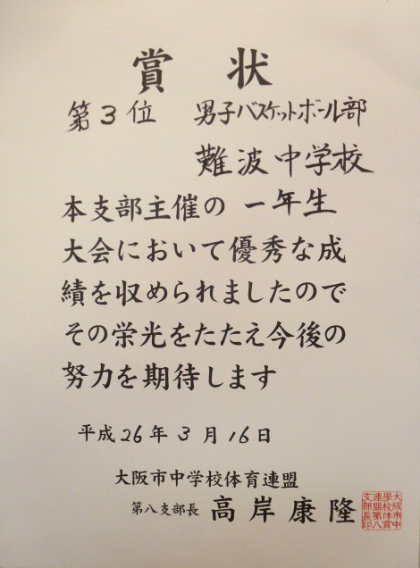 賞状
第3位 男子バスケットボール部
難波中学校
本支部主催の一年生
大会において優秀な成
績を収められましたので
その栄光をたたえ今後の
努力を期待します
平成26年3月16日
大阪市中学校体育連盟
第八支部長 高岸康隆
大阪市中
学校体育
連盟第八
支部長印